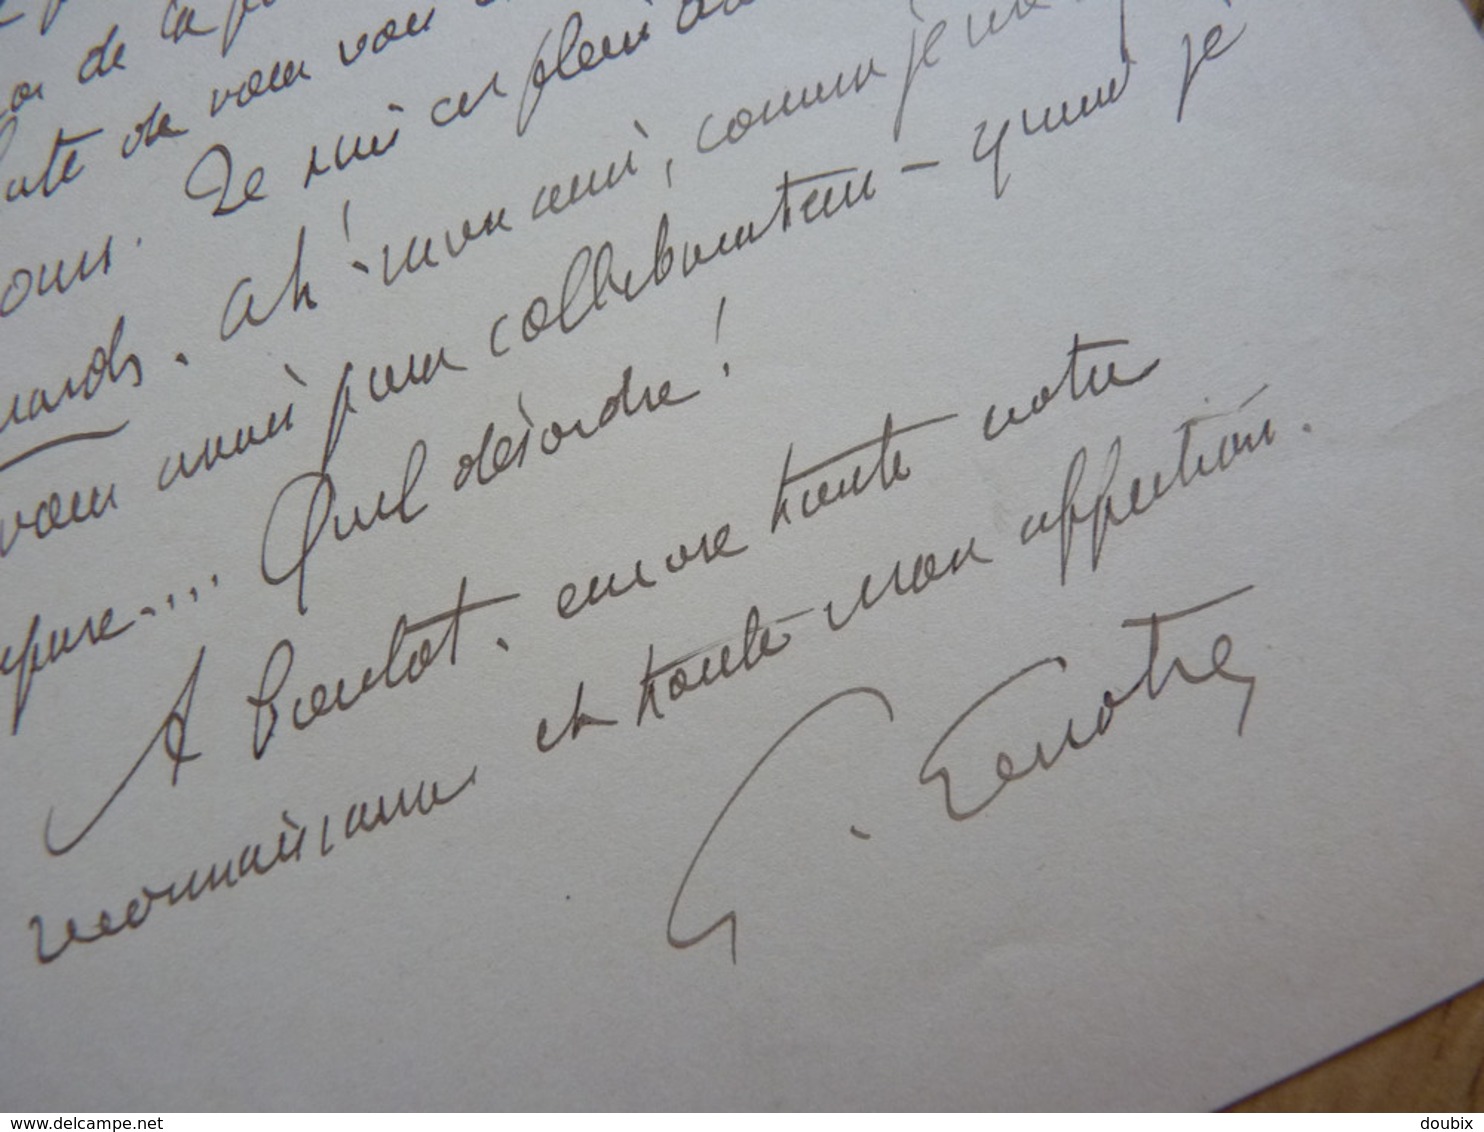 de la
de vous voir
Je suis en plein
Ah! mon ami, comme je
vous avoir pour collaborateur – quand je
Quel désordre!
A bientot. encore toute votre
reconnaissance et toute mon affection.
G. Lenotre
www.delcampe.net
doubix